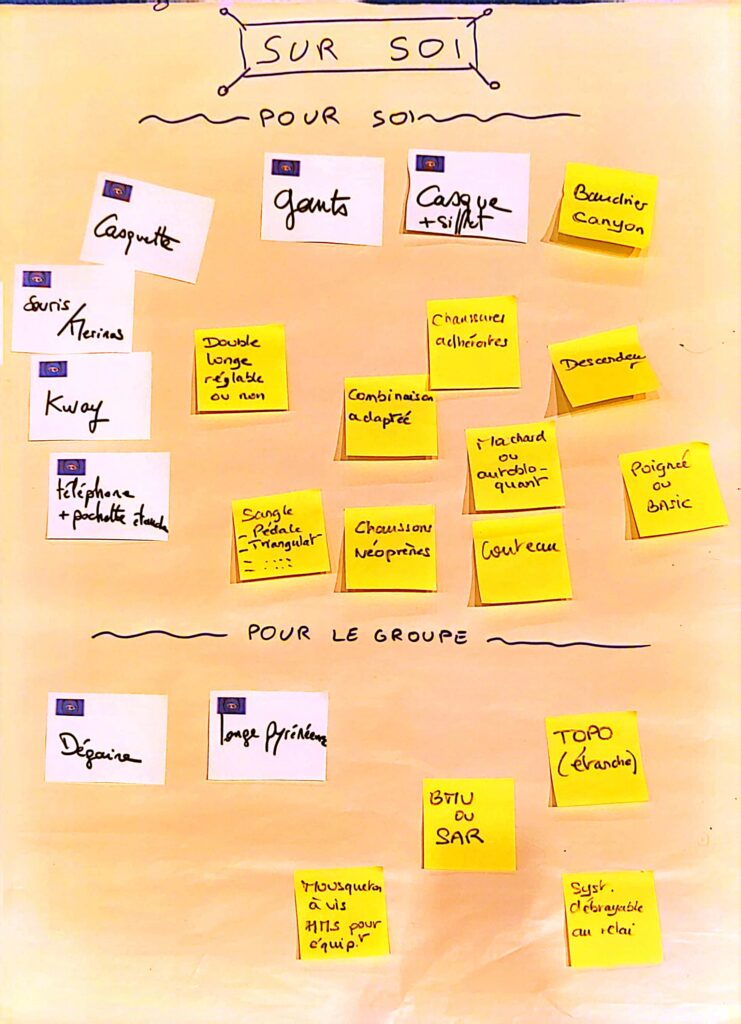 SUR SOI
POUR SOI
Casquette
gants
Casque
+ sifflet
Baudrier
Canyon
Souris
/Merinos
Kway
téléphone
+ pochette étanche
Double
longe
réglable
ou non
Chaussures
adhérentes
Combinaison
adaptée
Descendeur
Machard
ou
autoblo-
quant
Poignée
ou
BASIC
Sangle
- Pédale
- Triangulat
Chaussons
Néoprènes
Couteau
POUR LE GROUPE
Dégaine
longe pyrénéenne
TOPO
(étanche)
BMU
ou
SAR
Mousqueton
à vis
HMS pour
équip.r
Syst.
débrayable
au relai